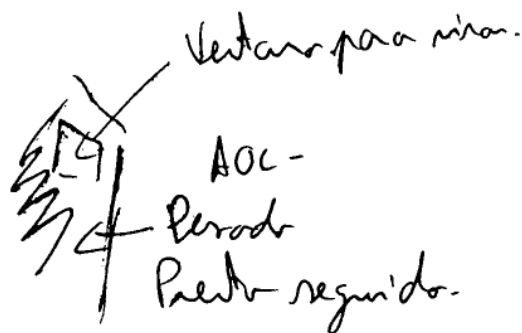 Ventana para mirar.
AOC -
Pesada
Puerta seguido.